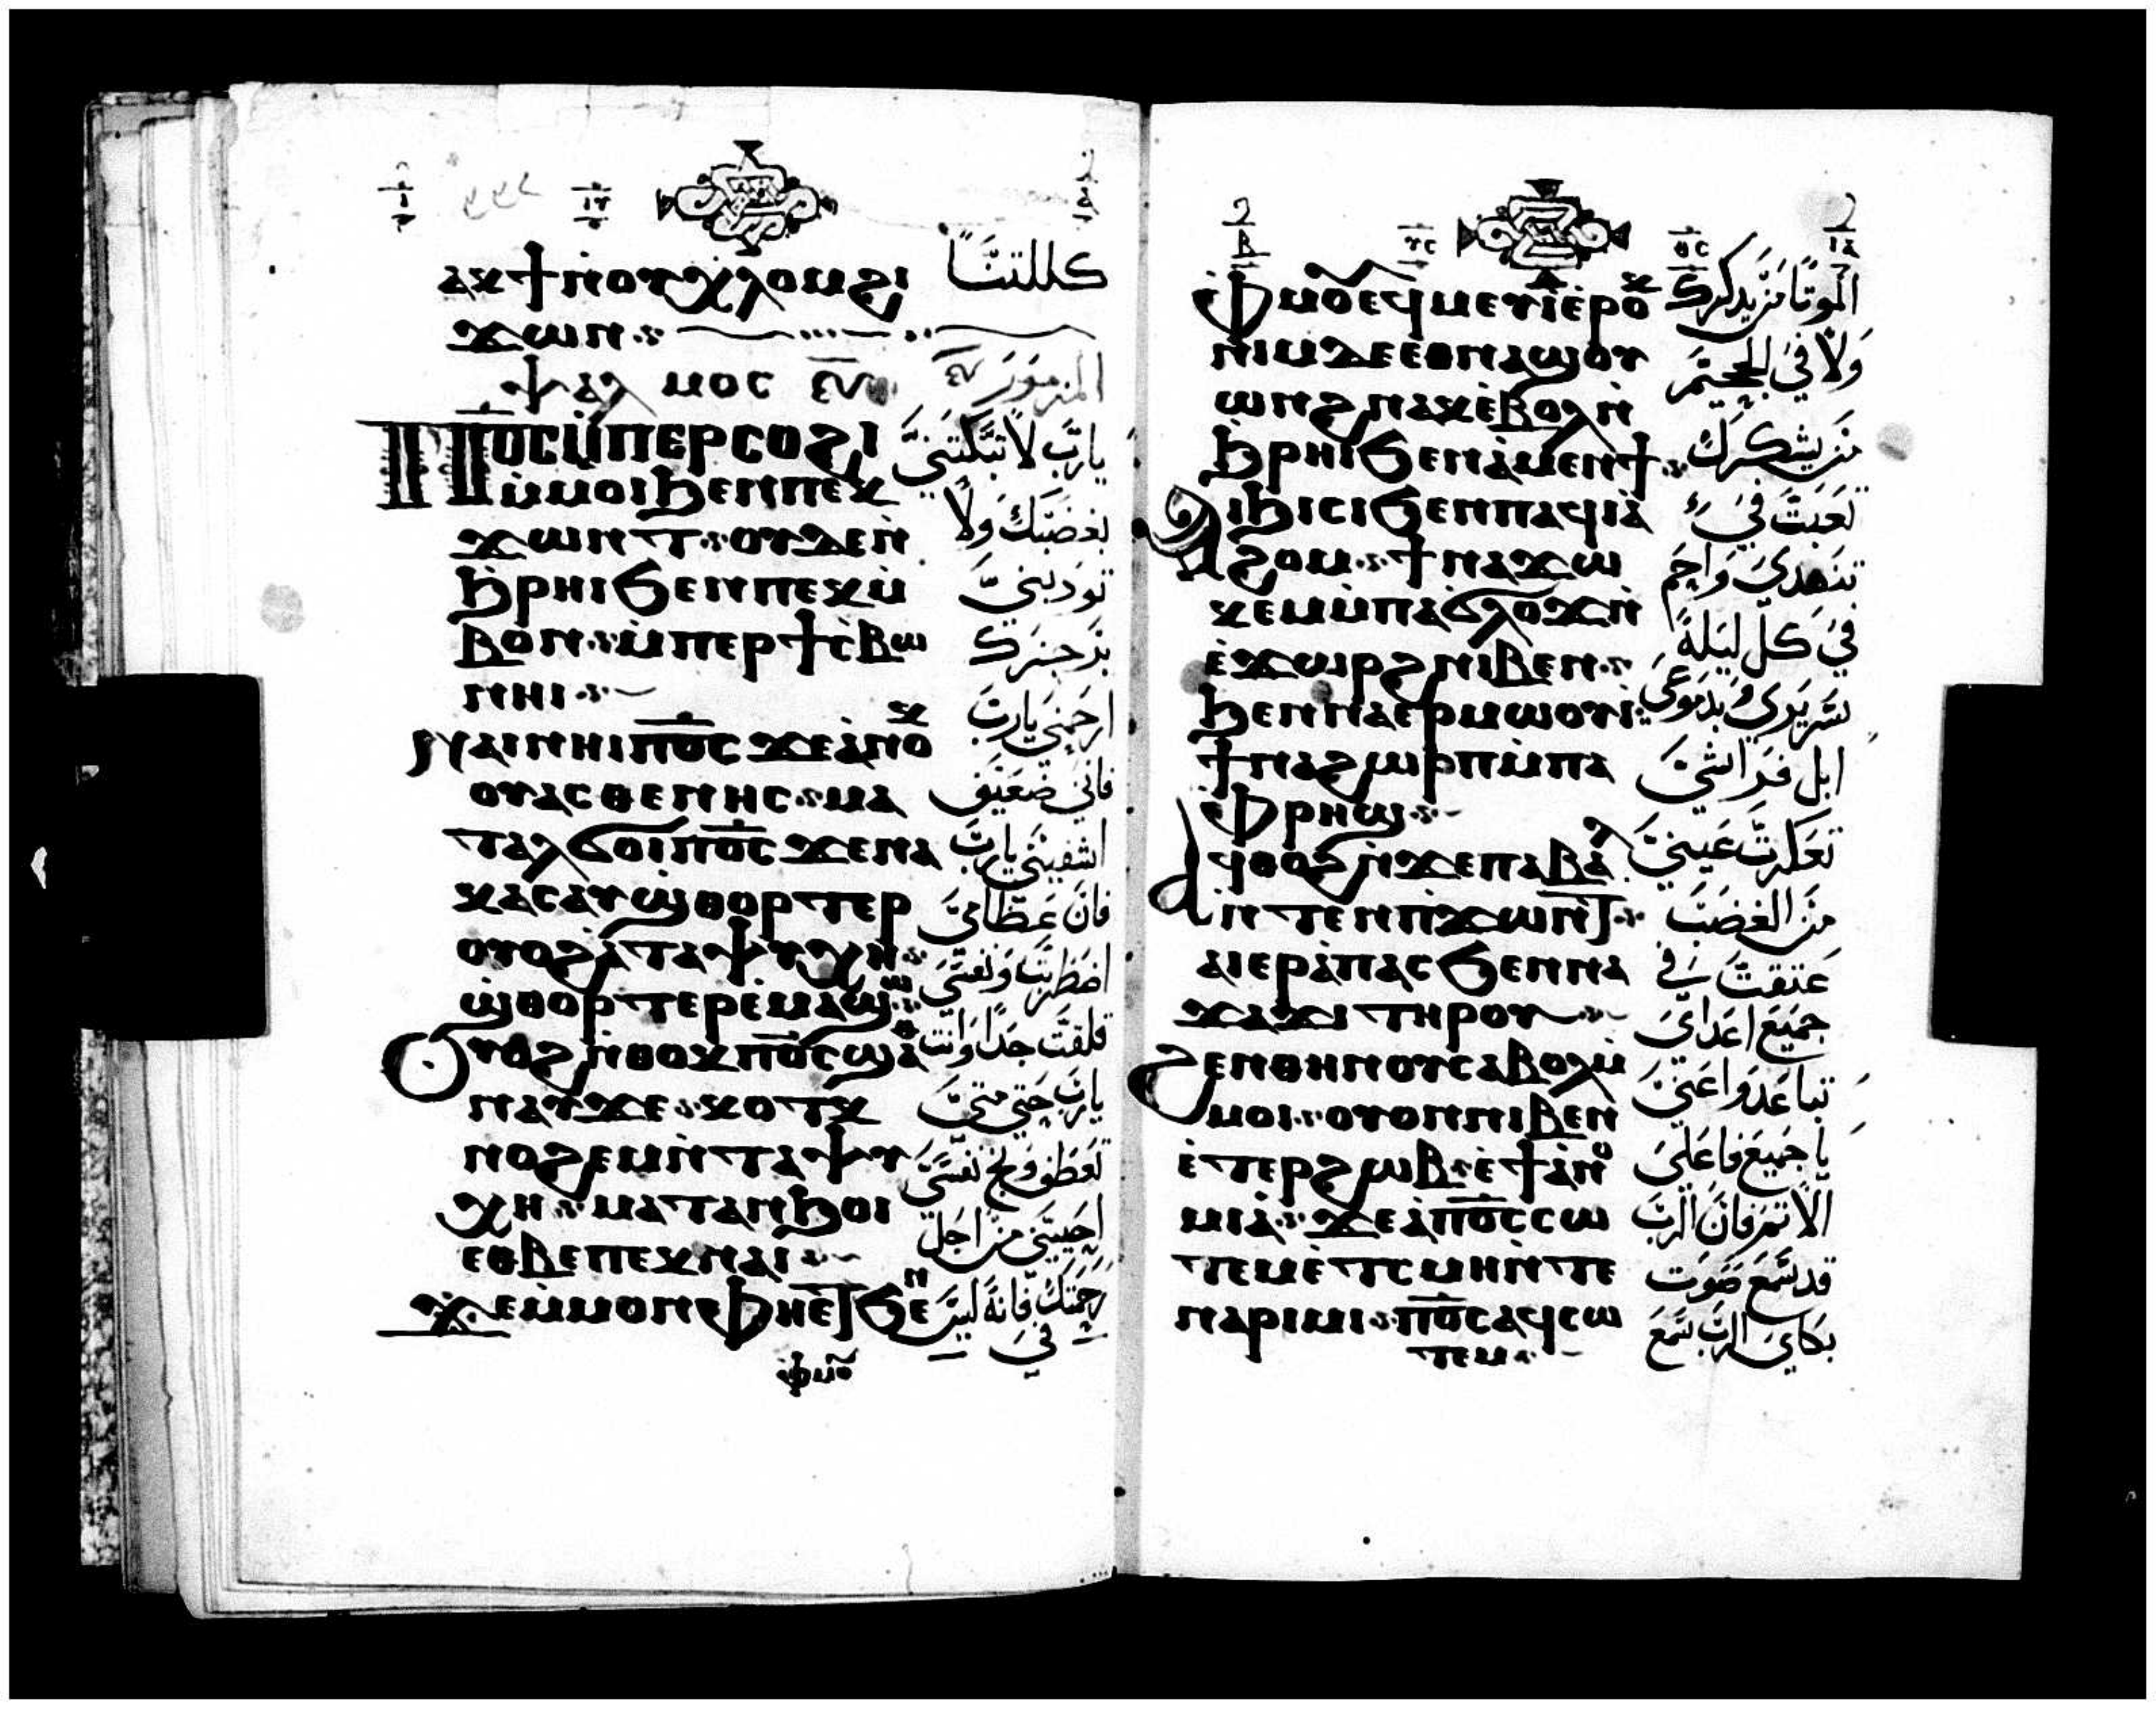 ⲁⲕϯⲛ̀ⲟⲩⲭⲗⲟⲙϩⲓ
ϫⲱⲛ
كللتنا
ⲯⲁⲗⲙⲟⲥ
المزمور
Ⲡⲟ̅ⲥ̅ⲙ̀ⲡⲉⲣⲥⲟϩⲓ
ⲙ̀ⲙⲟⲓϧⲉⲛⲡⲉⲕ
ϫⲱⲛⲧ ⲟⲩⲇⲉⲛ̀
ϧ̀ⲣⲏⲓϧⲉⲛⲡⲉⲕⲙ̀
ⲃⲟⲛ ⲙ̀ⲡⲉⲣϯⲥ̀ⲃⲱ
ⲛⲏⲓ
ⲛⲁⲓⲛⲏⲓⲡⲟ̅ⲥ̅ϫⲉⲁ̀ⲛⲟⲕ
ⲟⲩⲁⲥⲑⲉⲛⲏⲥ ⲙⲁ
ⲧⲁⲗϭⲟⲓⲡⲟ̅ⲥ̅ϫⲉⲛⲁ
ⲕⲁⲥⲁⲩϣ̀ⲑⲟⲣⲧⲉⲣ
ⲟⲩⲟϩⲁ̀ⲧⲁⲯⲩⲭⲏ
ϣ̀ⲑⲟⲣⲧⲉⲣⲉ̀ⲙⲁϣⲱ
Ⲟⲩⲟϩⲛ̀ⲑⲟⲕⲡⲟ̅ⲥ̅ϣⲁ̀
ⲛⲁⲩϫⲉ ⲕⲟⲧⲕ
ⲛⲟϩⲉⲙⲛ̀ⲧⲁⲯⲩ
ⲭⲏ ⲙⲁⲧⲁⲛϧⲟⲓ
ⲉⲑⲃⲉⲡⲉⲕⲛⲁⲓ
ϫⲉⲙ̀ⲙⲟⲛⲫⲏⲉⲧϧⲉⲛ
ⲫⲙⲟ
يارب لا تبكتني
بغضبك ولا
تودبني
بزجزك
ارحمني يارب
فاني ضعيف
اشفيني يارب
فان عظامي
اضطربت ونفسي
قلقت جدا وانت
يارب حتى متى
تعطف ونج نفسي
احييني من اجل
رحمتك فانه ليس
في
ⲫⲙⲟⲩⲉϥⲙⲉⲩⲓ̀ⲉ̀ⲣⲟⲕ
ⲛⲓⲙⲇⲉⲉⲑⲛⲁϣⲟⲩ
ⲱⲛϩⲛⲁⲕⲉ̀ⲃⲟⲗⲛ̀
ϧ̀ⲣⲏⲓϧⲉⲛⲁ̀ⲙⲉⲛϯ
ⲁⲓϧⲓⲥⲓϧⲉⲛⲡⲁϥⲓⲁ̀
ϩⲟⲙ ϯⲛⲁϫⲱ
ⲕⲉⲙⲙ̀ⲡⲁϭⲗⲟϫⲛ̀
ⲉ̀ϫⲱⲣϩⲛⲓⲃⲉⲛ
ϧⲉⲛⲛⲁⲉⲣⲙⲱⲟⲩⲓ
ϯⲛⲁϩⲱⲣⲡⲙ̀ⲡⲁ
ⲫ̀ⲣⲏϣ
ⲁϥⲑⲟϩⲛ̀ϫⲉⲡⲁⲃⲁⲗ
ⲛⲧⲉⲛⲡϫⲱⲛⲧ
ⲁⲓⲉⲣⲁ̀ⲡⲁⲥϧⲉⲛⲛⲁ
ϫⲁϫⲓⲧⲏⲣⲟⲩ
ϩⲉⲛⲑⲏⲛⲟⲩⲥⲁⲃⲟⲗⲙ̀
ⲙⲟⲓ ⲟⲩⲟⲛⲛⲓⲃⲉⲛ
ⲉ̀ⲧⲉⲣϩⲱⲃⲉ̀ϯⲁ̀ⲛⲟ
ⲙⲓⲁ̀ ϫⲉⲁ̀ⲡⲟ̅ⲥ̅ⲥⲱ
ⲧⲉⲙⲉ̀ⲧⲥⲙⲏⲛ̀ⲧⲉ
ⲡⲁⲣⲓⲙⲓ ⲡⲟ̅ⲥ̅ⲁϥⲥⲱ
ⲧⲉⲙ
الموتا من يدكرك
ولا في الجحيم
من يشكرك
تعبت في
تنهدي واحم
في كل ليلة
سريري وبدموعي
ابل فراشي
تعكرت عيني
من الغضب
عتقت في
جميع اعداي
تباعدوا عني
يا جميع فاعلي
الاثم فان الرب
قد سمع صوت
بكاي الرب سمع